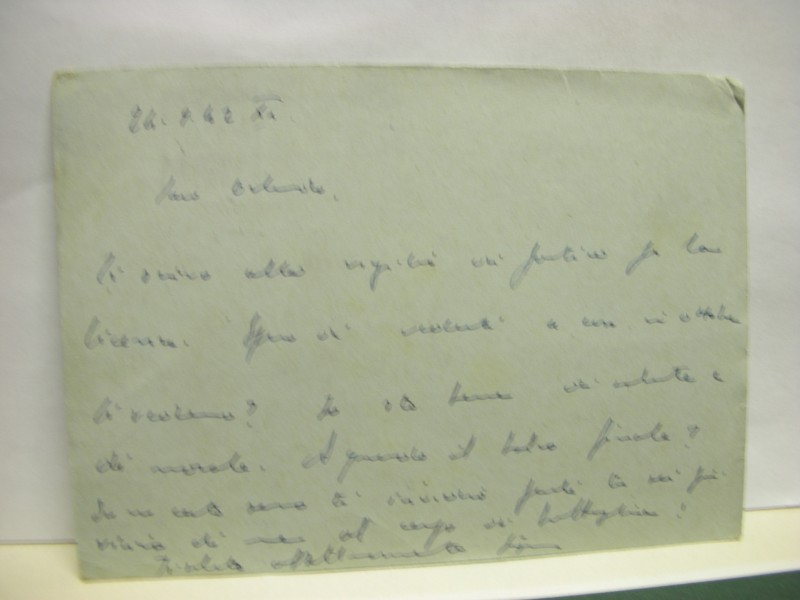 24.9.42 XX.
Caro Orlando,
Ti scrivo alla vigilia di partire per la
licenza. Spero di vederti a casa in ottobre
Ti vedremo? Io sto bene di salute e
di morale. A quando il balzo finale?
In un certo senso ti invidio perché tu sei più
vicino di me al campo di battaglia!
Ti saluto